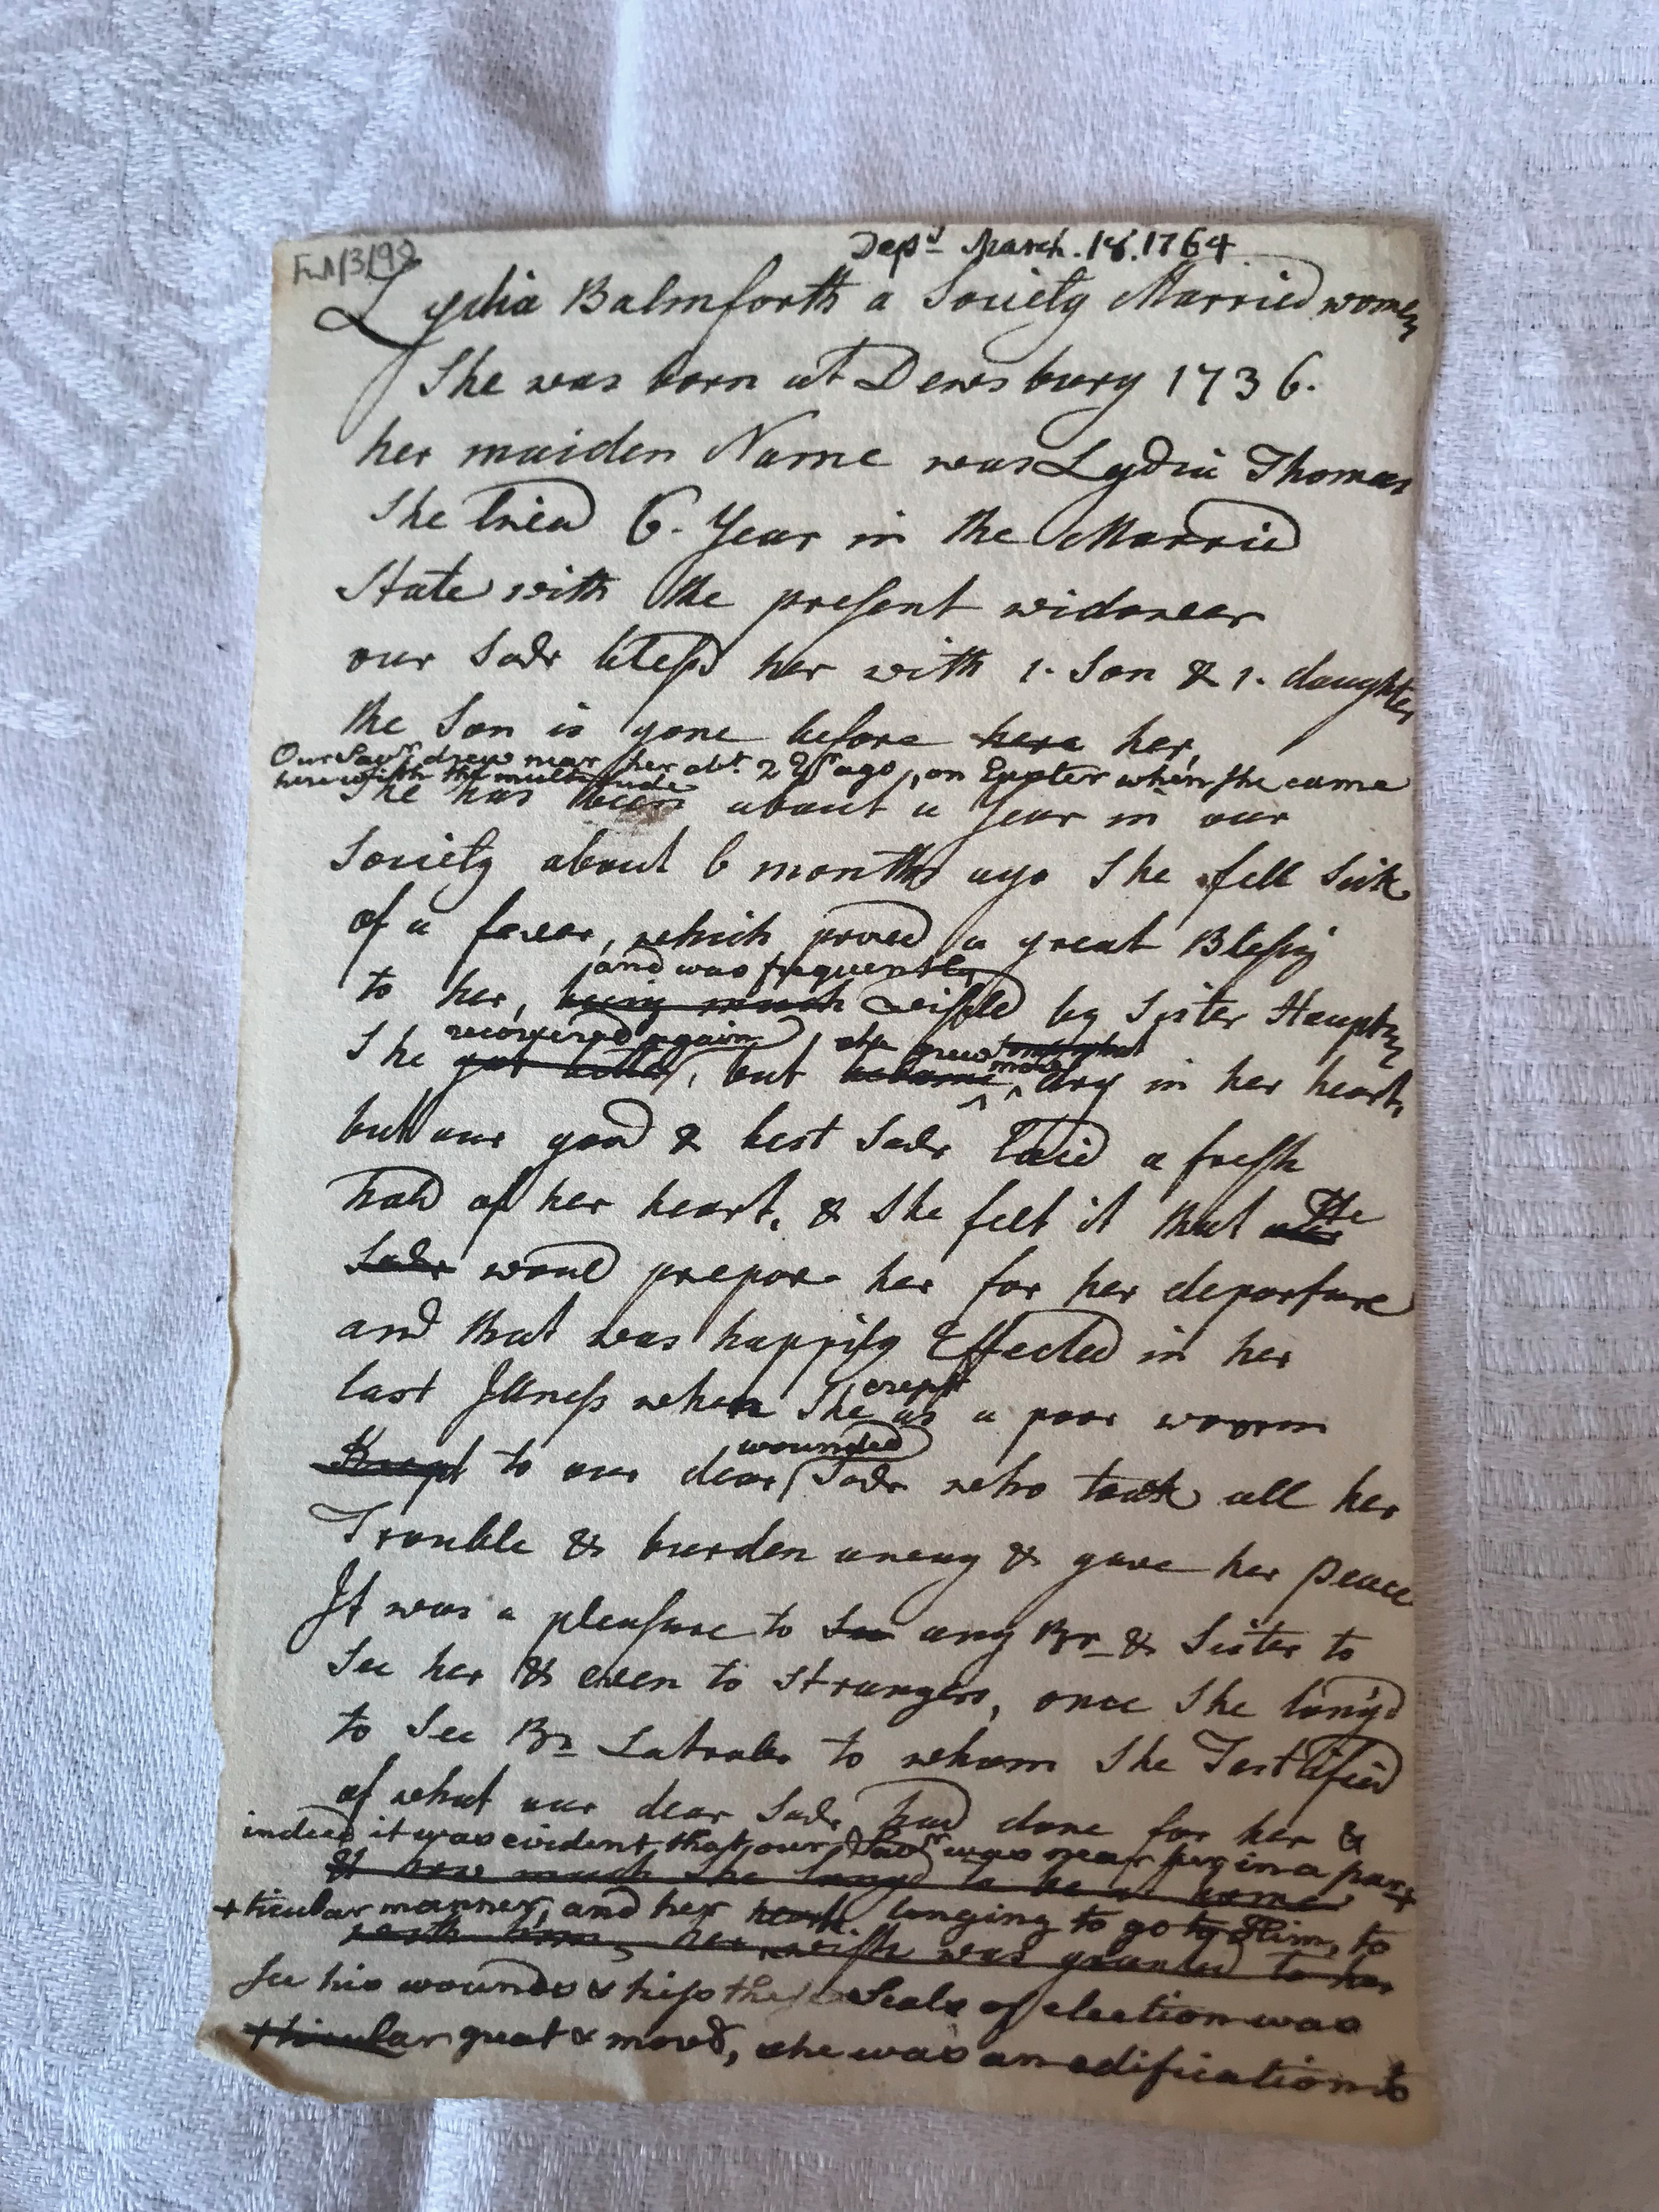 Ful/3/98
Depd March. 18. 1764
Lydia Balmforth a Society Married women
She was born at Dewsbury 1736.
her maiden Name was Lydia Thomas
She lived 6. Year in the Married
State with the present widower
our Savr bless'd her with 1. Son & 1. daughter
the Son is gone before here her,
Our Savr drew near her abt. 2 Yrs ago, on Easter when she came
here with the multitude
She has been about a Year in our
Society about 6 months ago She fell sick
of a fever, which proved a great Blessing
and was frequently
to her, being much visited by Sister
recovered again she grew somewhat
more
She got better, but became dry in her heart,
but our good & best Savr laid a fresh
hold of her heart. & She felt it that our the
Savr would prepare her for her departure
and that was happily Effected in her
crept
last Illness when She as a poor worm
wounded
Kreept to our dear Savr who took all her
Trouble & burden away & gave her peace
It was a pleasure to See any Br & Sister to
See her & even to strangers, once She long'd
to See Br Latrobe to whom She Testified
of what our dear Savr had done for her &
indeed it was evident that our Savr was near her in a par+
& how much she longd to be at home
+ticular manner, and her heart longing to go to Him, to
with him, her wish was granted to her
See his wounds & kiss these Seals of election was
+ticular great & mov'd, she was an edification to